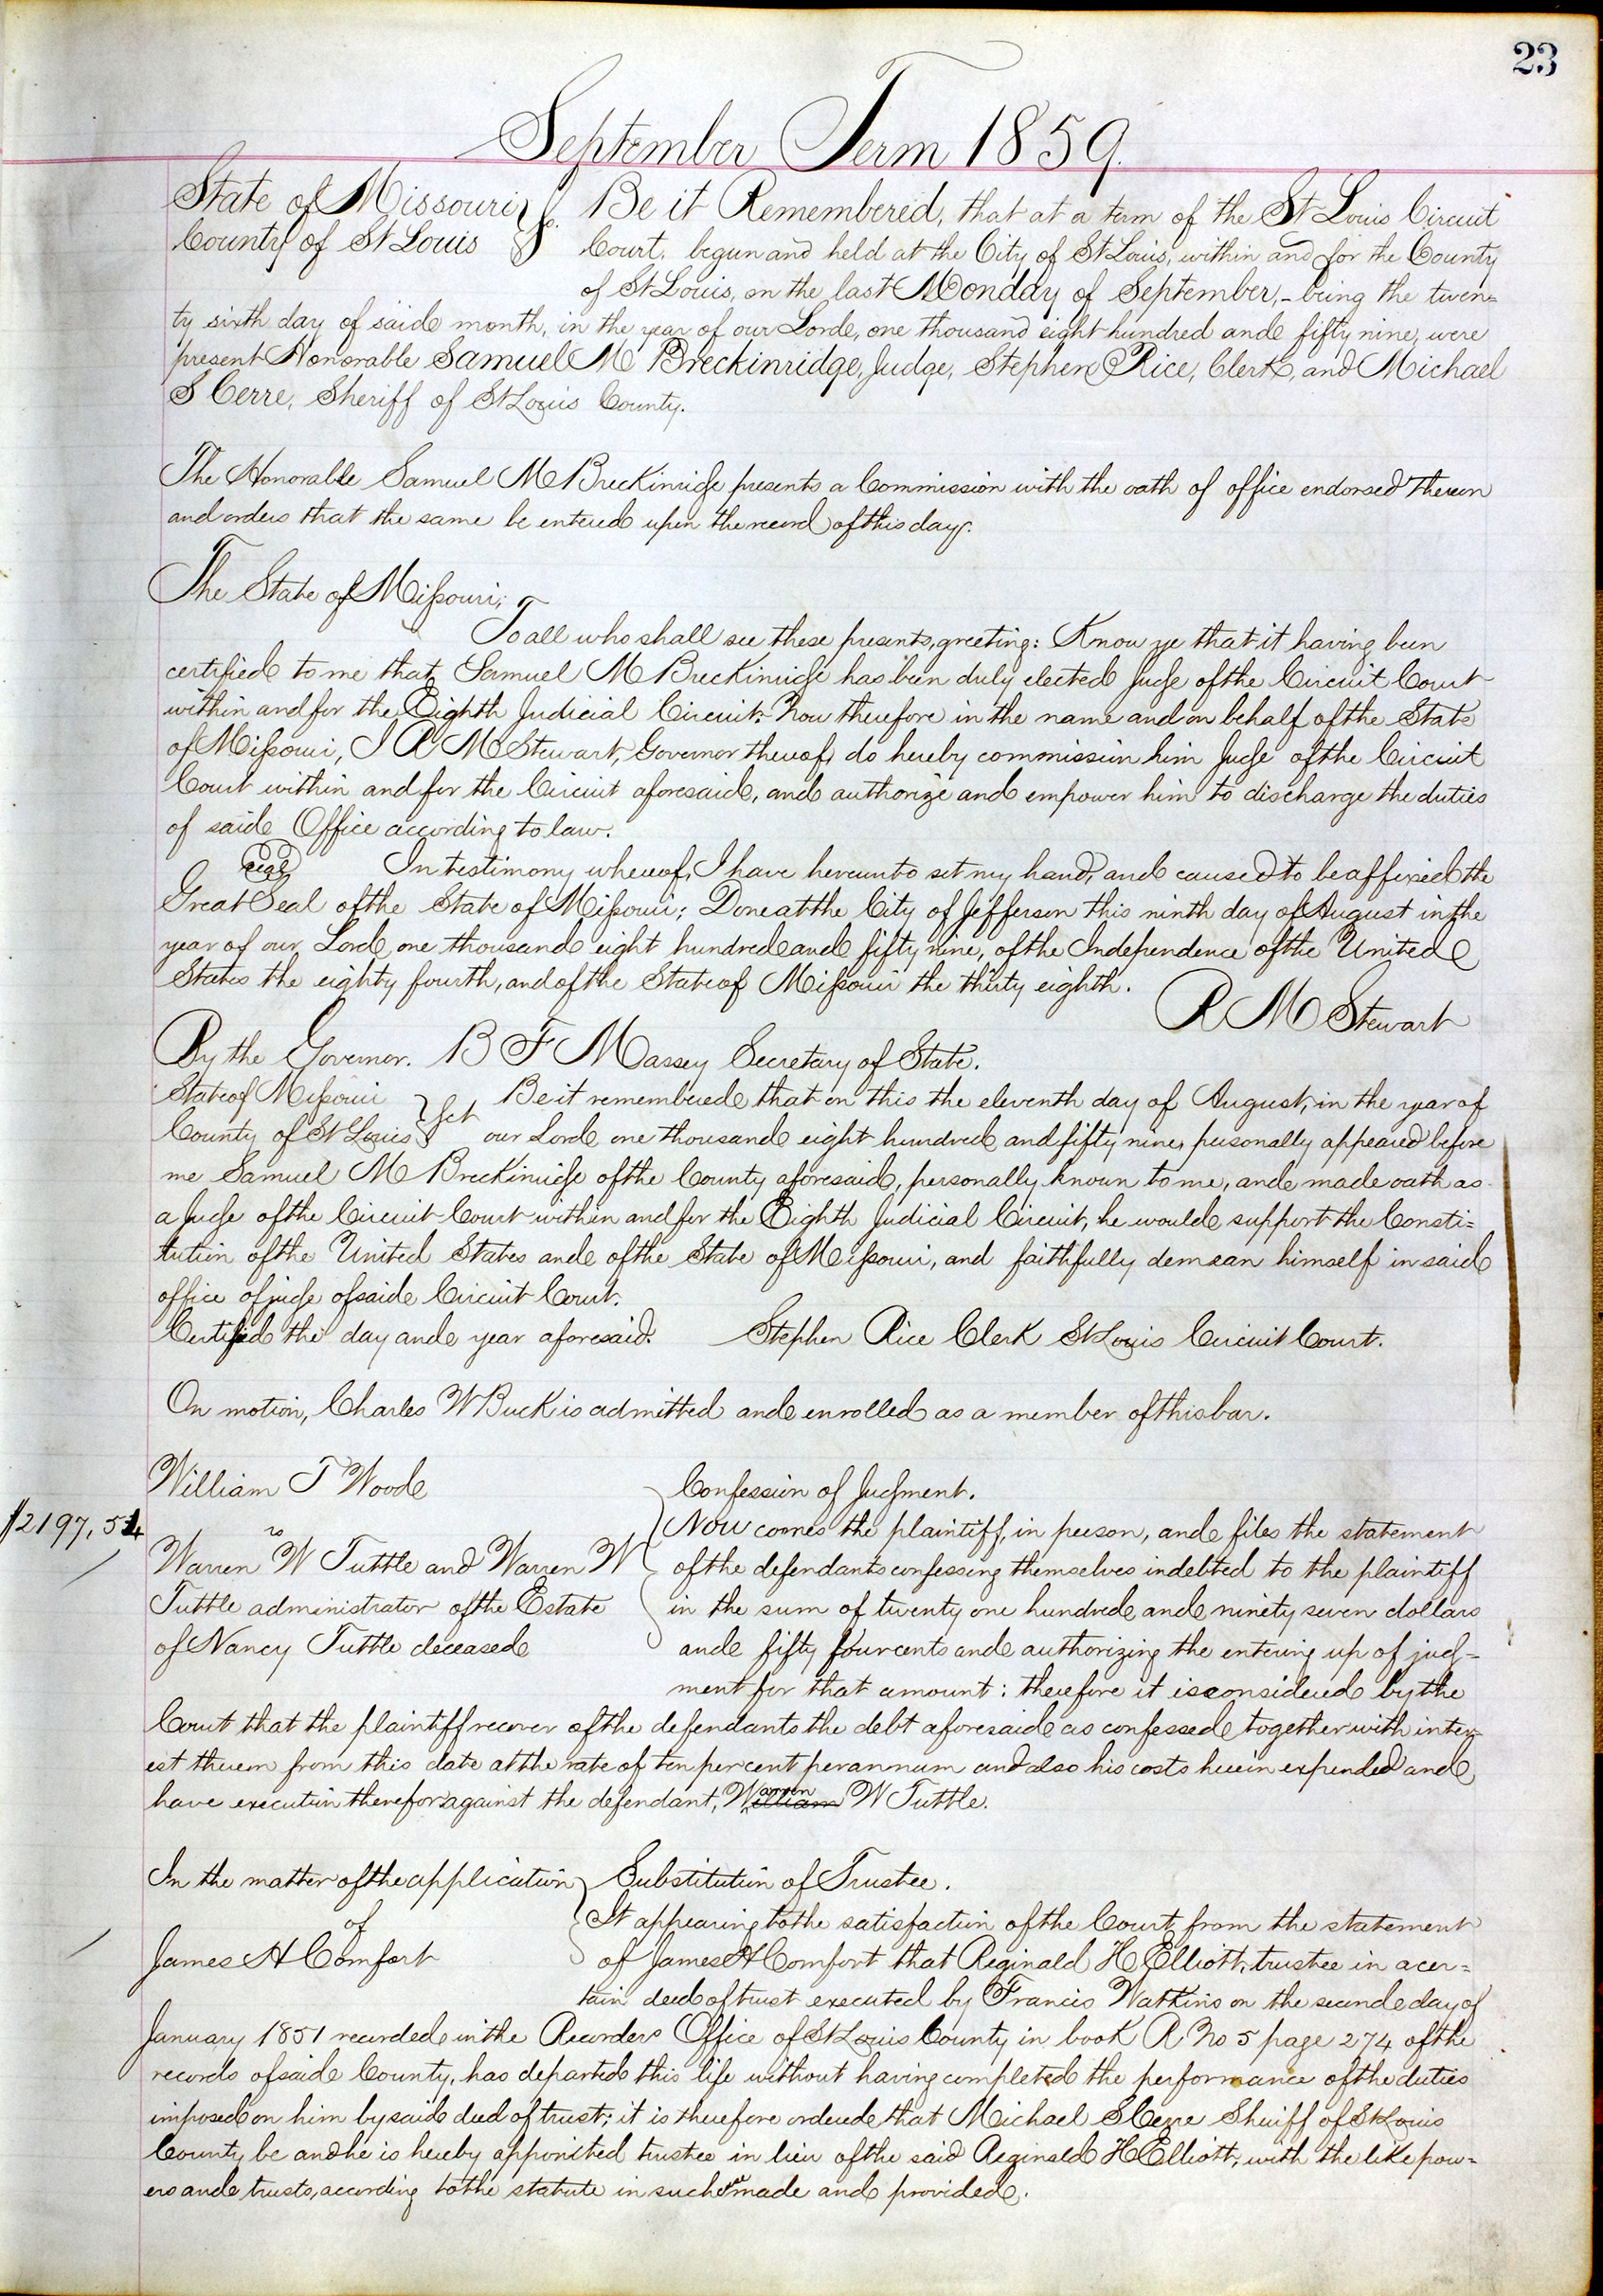 23
September Term 1859.
State of Missouri } Sc. Be it Remembered, that at a term of the St Louis Circuit
County of St Louis Court, begun and held at the City of St Louis, within and for the County
of St Louis, on the last Monday of September,- being the twen=
ty sixth day of said month, in the year of our Lord, one thousand eight hundred and fifty nine, were
present Honorable Samuel M Breckinridge, Judge, Stephen Rice, Clerk, and Michael
S Cerre, Sheriff of St Louis County.
The Honorable Samuel M Breckinridge presents a Commission with the oath of office endorsed thereon
and orders that the same be entered upon the record of this day.
The State of Missouri;
To all who shall see these presents, greeting: Know ye that it having been
certified to me that Samuel M Breckinridge has been duly elected Judge of the Circuit Court
within and for the Eighth Judicial Circuit. Now therefore in the name and on behalf of the State
of Missouri, I R M Stewart, Governor thereof, do hereby commission him Judge of the Circuit
Court within and for the Circuit aforesaid, and authorize and empower him to discharge the duties
of said Office according to law.
seal In testimony whereof, I have hereunto set my hand, and caused to be affixed the
Great Seal of the State of Missouri; Done at the City of Jefferson this ninth day of August in the
year of our Lord one thousand eight hundred and fifty nine, of the Independence of the United
States the eighty fourth, and of the State of Missouri the thirty eighth.
R M Stewart
By the Governor. B F Massey Secretary of State.
State of Missouri } Sct Be it remembered that on this the eleventh day of August, in the year of
County of St Louis our Lord one thousand eight hundred and fifty nine, personally appeared before
me Samuel M Breckinridge of the County aforesaid, personally known to me, and made oath as
a Judge of the Circuit Court within and for the Eighth Judicial Circuit, he would support the Consti=
tution of the United States and of the State of Missouri, and faithfully demean himself in said
office of judge of said Circuit Court.
Certified the day and year aforesaid. Stephen Rice Clerk St Louis Circuit Court.
On motion, Charles W Buck is admitted and enrolled as a member of this bar.
William T Wood
$2197,54
vs
Warren W Tuttle and Warren W
Tuttle administrator of the Estate
of Nancy Tuttle deceased
Confession of Judgment.
Now comes the plaintiff, in person, and files the statement
of the defendants confessing themselves indebted to the plaintiff
in the sum of twenty one hundred and ninety seven dollars
and fifty four cents and authorizing the entering up of judg-
ment for that amount: therefore it is considered by the
Court that the plaintiff recover of the defendants the debt aforesaid as confessed together with inter-
est thereon from this date at the rate of ten per cent per annum and also his costs herein expended and
have execution therefor against the defendant, Warren W Tuttle.
In the matter of the application
of
James H Comfort
Substitution of Trustee.
It appearing to the satisfaction of the Court from the statement
of James H Comfort that Reginald H Elliott, trustee in a cer=
tain deed of trust executed by Francis Watkins on the second day of
January 1851 recorded in the Recorders Office of St Louis County in book R No 5 page 274 of the
records of said County, has departed this life without having completed the performance of the duties
imposed on him by said deed of trust; it is therefore ordered that Michael S Cerre Sheriff of St Louis
County be and he is hereby appointed trustee in lieu of the said Reginald H Elliott, with the like pow=
ers and trusts, according to the statute in such made and provided.